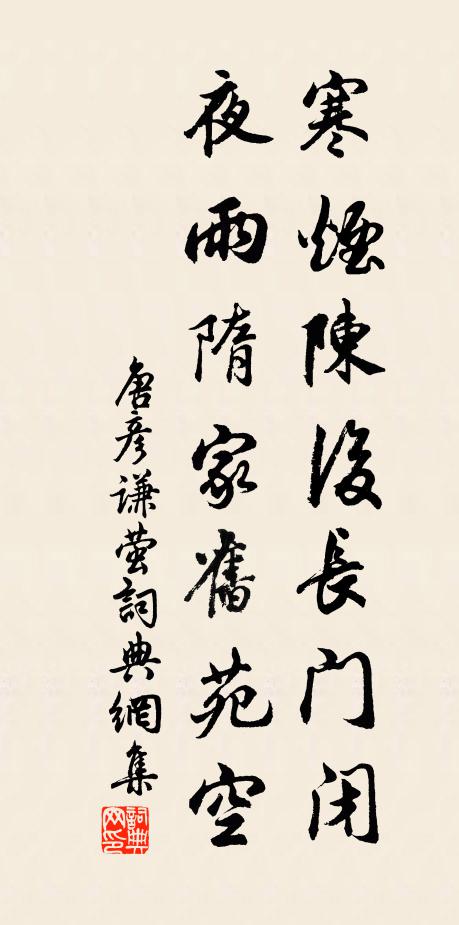 寒煙陳後長門闭
夜雨隋家舊苑空
唐彦谦萤詞典網集
詞典网印